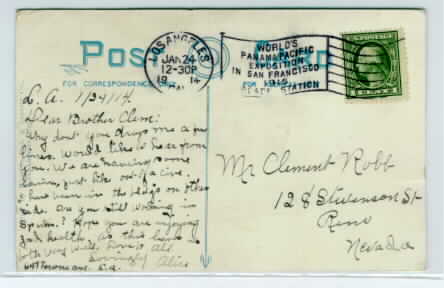 Post Card
LOS ANGELES
JAN 24
12-30P
1914
CAL.
WORLD'S
PANAMA-PACIFIC
EXPOSITION
IN SAN FRANCISCO
1915
STATION
FOR CORRESPONDENCE
FOR
L. A. 1/24/14.
Dear Brother Clem:
Why don't you drop me a few
lines. Would like to hear from
you. We are having some
rain, just like
have been in the on other
side. Are you still working in
Sparks? Hope you are enjoying
good health, as this leaves us
both very well. Love to all
Lovingly Alice
Mr Clement Robb
128 Stevenson St
Reno
Nevada